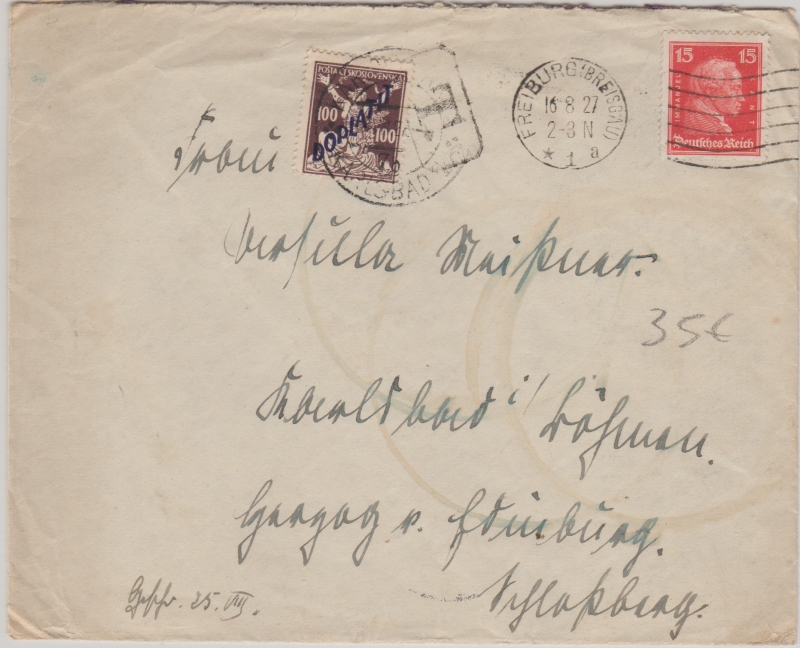 POŠTA ČESKOSLOVENSKÁ
100 100
DOPLATIT
T
KARLSBAD
FREIBURG (BREISGAU)
16 8 27
2-3 N
* 1 a
15 15
IMMANUEL KANT
Deutsches Reich
Frau
Ursula Meißner.
35€
Karlsbad i/ Böhmen.
Herzog v. Edinburg.
Schloßberg.
Geschr. 25. VIII.